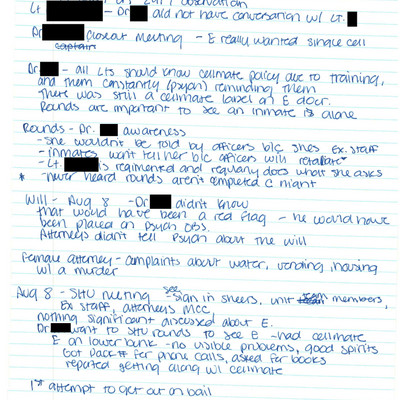 24/7 observation
Lt - Dr did not have conversation w/ Lt.
Dr closeout meeting - E really wanted single cell
captain
Dr - all Lts should know cellmate policy due to training,
and them constantly (psych) reminding them
There was still a cellmate label on E door.
Rounds are important to see an inmate is alone
Rounds - Dr. awareness
- She wouldn't be told by officers b/c shes Ex. Staff
- inmates wont tell her b/c officers will retaliate
- Lt. is regimented and regularly does what she asks
* - never heard rounds aren't completed @ night
Will - Aug 8 - Dr didn't know
that would have been a red flag - he would have
been placed on psych obs.
Attorneys didn't tell Psych about the will
Female attorney - complaints about water, vending, housing
w/ a murder
Aug 8 - SHU meeting see sign in sheets, unit team members,
Ex Staff, attorneys MCC
nothing significant discussed about E.
Dr want to SHU rounds to see E - had cellmate
E on lower bunk - no visible problems, good spirits
Got PAC # for phone calls, asked for books
reported getting along w/ cellmate
1st attempt to get out on bail